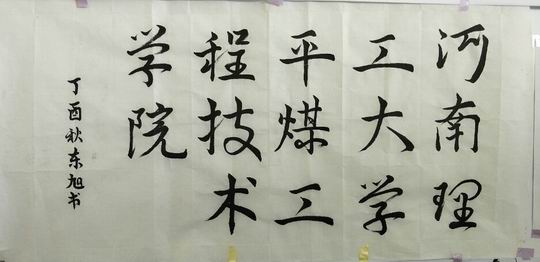 河南理
工大学
平煤工
程技术
学院
丁酉秋东旭书